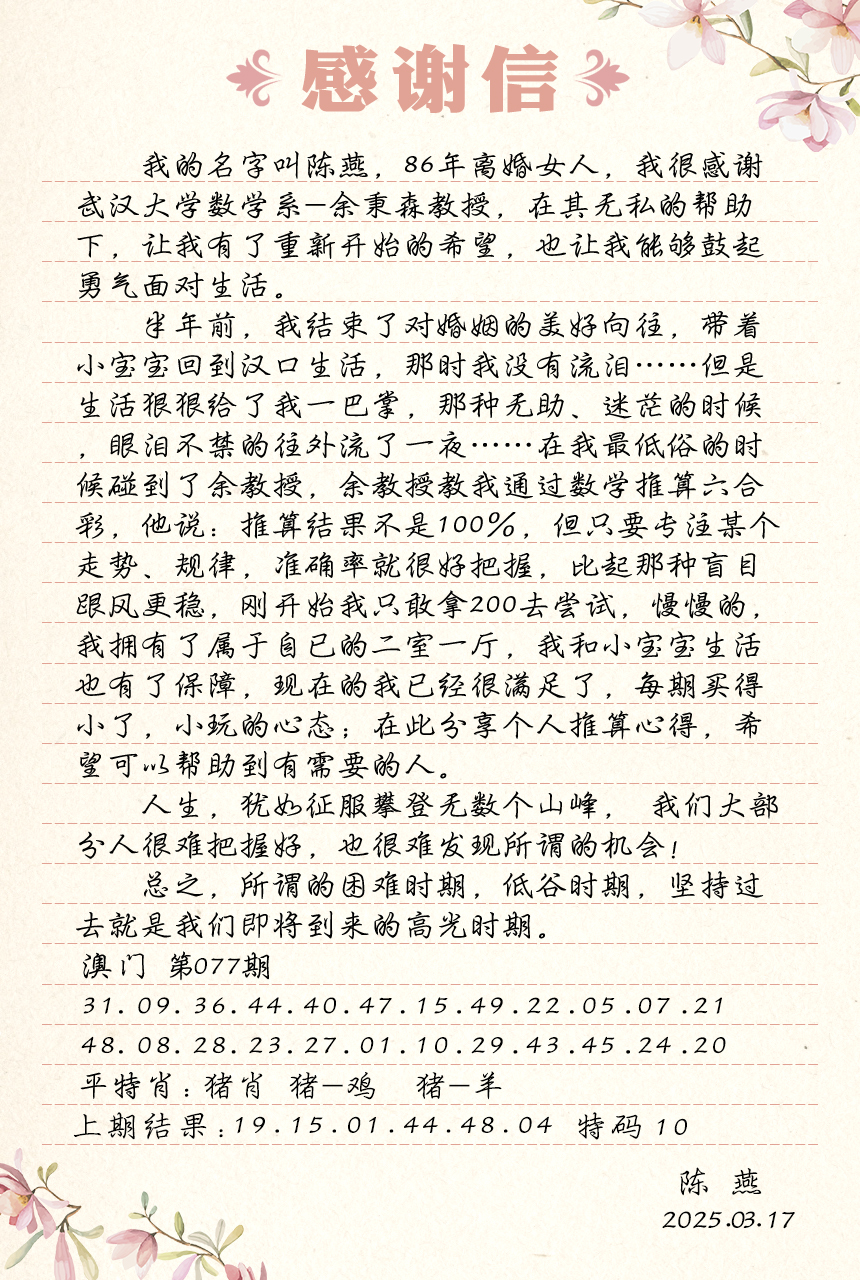 感谢信
我的名字叫陈燕，86年离婚女人，我很感谢
武汉大学数学系-余秉森教授，在其无私的帮助
下，让我有了重新开始的希望，也让我能够鼓起
勇气面对生活。
半年前，我结束了对婚姻的美好向往，带着
小宝宝回到汉口生活，那时我没有流泪……但是
生活狠狠给了我一巴掌，那种无助、迷茫的时候
，眼泪不禁的往外流了一夜……在我最低俗的时
候碰到了余教授，余教授教我通过数学推算六合
彩，他说：推算结果不是100%，但只要专注某个
走势、规律，准确率就很好把握，比起那种盲目
跟风更稳，刚开始我只敢拿200去尝试，慢慢的，
我拥有了属于自已的二室一厅，我和小宝宝生活
也有了保障，现在的我已经很满足了，每期买得
小了，小玩的心态；在此分享个人推算心得，希
望可以帮助到有需要的人。
人生，犹如征服攀登无数个山峰， 我们大部
分人很难把握好，也很难发现所谓的机会！
总之，所谓的困难时期，低谷时期，坚持过
去就是我们即将到来的高光时期。
澳门 第077期
31.09.36.44.40.47.15.49.22.05.07.21
48.08.28.23.27.01.10.29.43.45.24.20
平特肖：猪肖 猪-鸡 猪-羊
上期结果：19.15.01.44.48.04 特码 10
陈 燕
2025.03.17